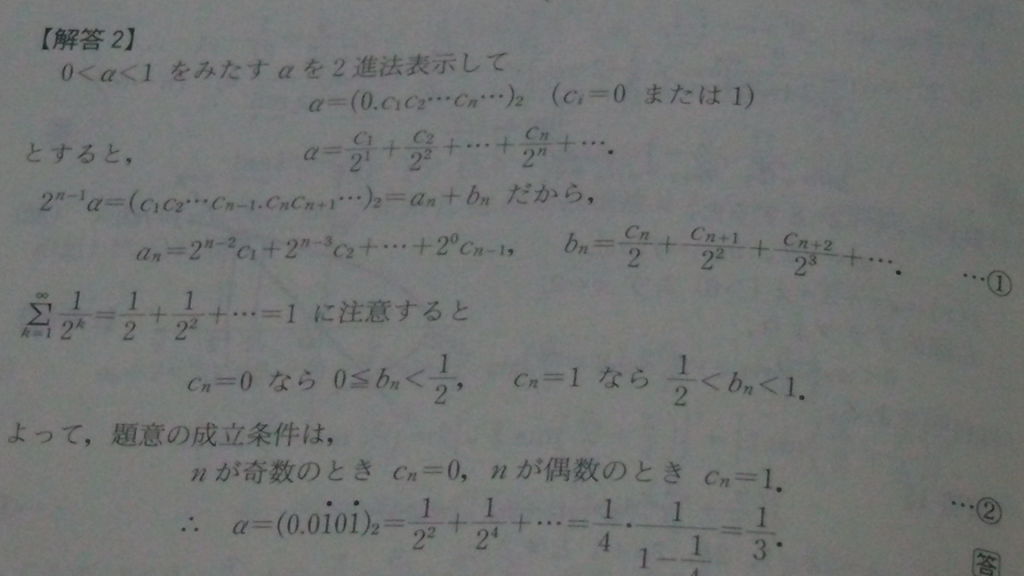 【解答2】
0<α<1 をみたす α を 2 進法表示して
α=(0.c₁c₂…cₙ…)₂ (cᵢ=0 または 1)
とすると, α=c₁/2¹+c₂/2²+…+cₙ/2ⁿ+….
2ⁿ⁻¹α=(c₁c₂…cₙ₋₁.cₙcₙ₊₁…)₂=aₙ+bₙ だから,
aₙ=2ⁿ⁻²c₁+2ⁿ⁻³c₂+…+2⁰cₙ₋₁, bₙ=cₙ/2+cₙ₊₁/2²+cₙ₊₂/2³+…. …①
∑[k=1,∞] 1/2ᵏ=1/2+1/2²+…=1 に注意すると
cₙ=0 なら 0≦bₙ<1/2, cₙ=1 なら 1/2<bₙ<1.
よって, 題意の成立条件は,
n が奇数のとき cₙ=0, n が偶数のとき cₙ=1. …②
∴ α=(0.01̇01̇)₂=1/2²+1/2⁴+…=1/4・1/(1−1/4)=1/3.
答